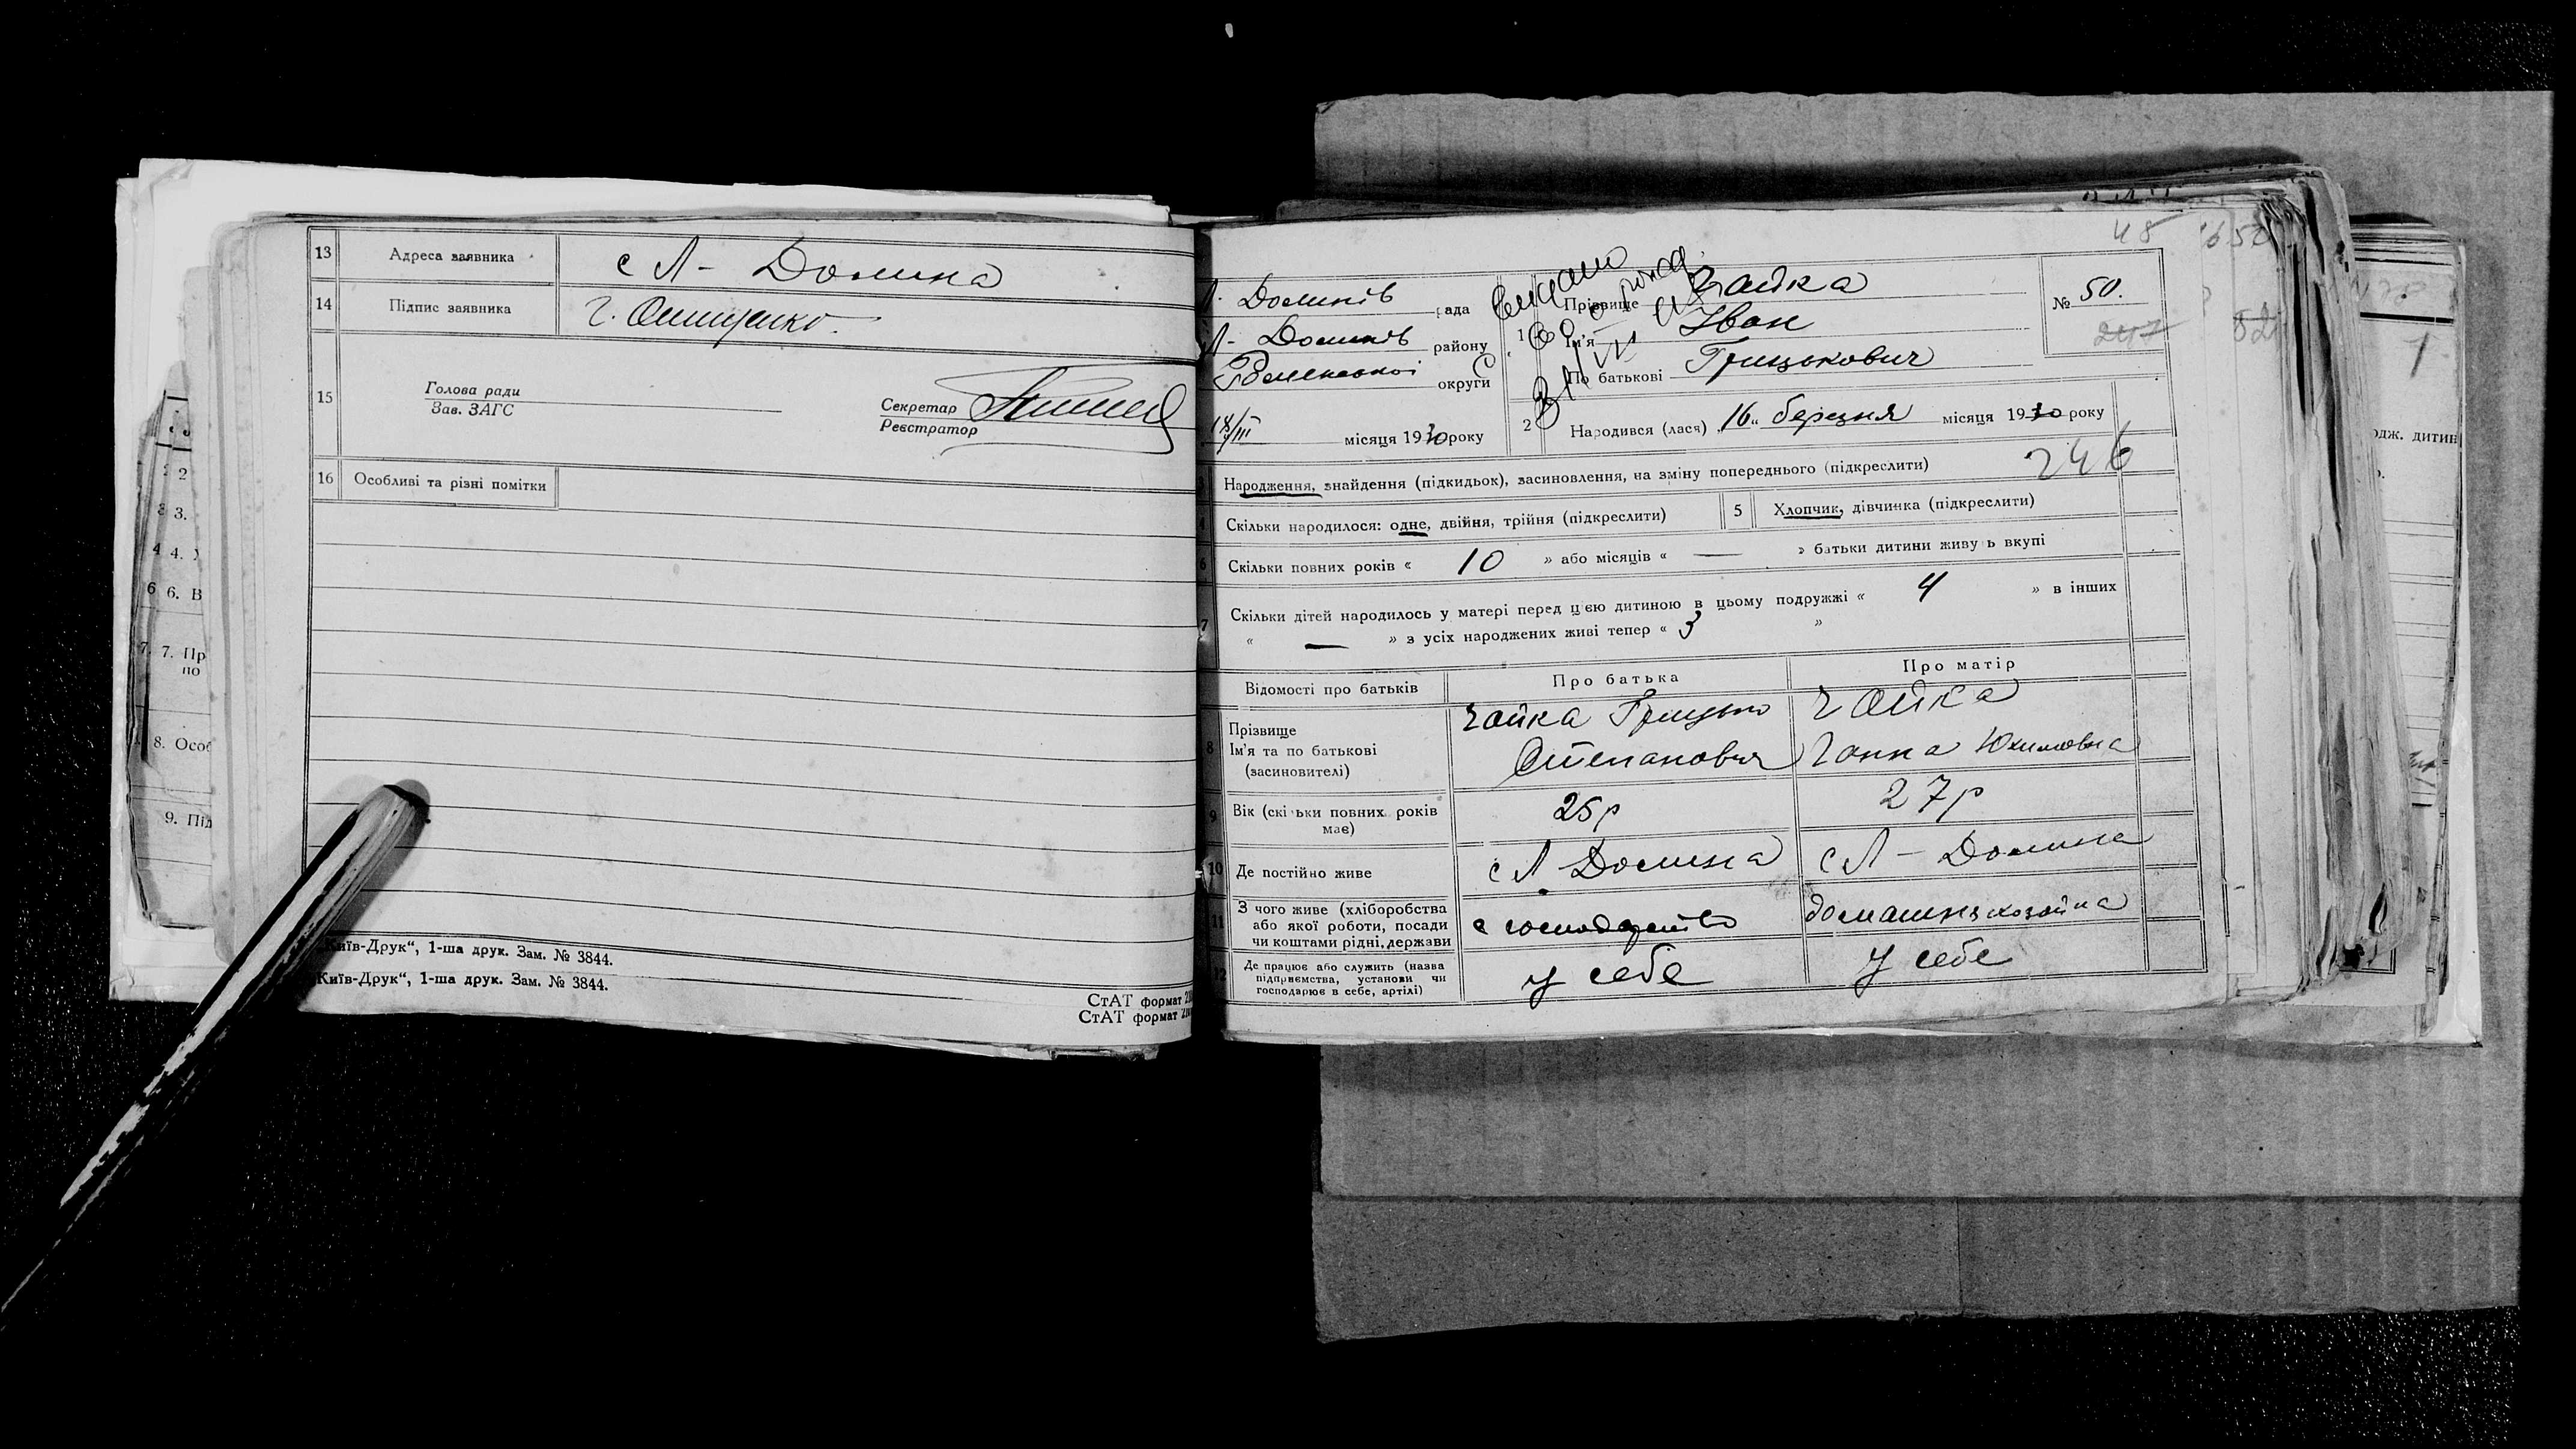 13 Адреса заявника с Л- Долина
14 Підпис заявника Г. Онищенко.
15 Голова ради
Зав. ЗАГС
Секретар
Реєстратор
16 Особливі та різні помітки
Київ-Друк“, 1-ша друк. Зам. № 3844.
Київ-Друк“, 1-ша друк. Зам. № 3844.
СтАТ формат
СтАТ формат
2
3.
4.
6. В
7. Пр
по
8. Особ
9. Під
48
Л- Долинів рада
Л- Долинів району
Роменської округи
18/III місяця 1930 року
видано
1 Прізвище Чайка
Ім'я Іван
По батькові Грицькович
№ 50.
247
2 Народився (лася) „16“ березня місяця 1930 року
246
Народження, знайдення (підкидьок), засиновлення, на зміну попереднього (підкреслити)
4 Скільки народилося: одне, двійня, трійня (підкреслити)
5 Хлопчик, дівчинка (підкреслити)
6 Скільки повних років « 10 » або місяців « — » батьки дитини живуть вкупі
7 Скільки дітей народилось у матері перед цією дитиною в цьому подружжі « 4 » в інших
« — » з усіх народжених живі тепер « 3 »
Відомості про батьків Про батька Про матір
8 Прізвище
Ім'я та по батькові
(засиновителі)
Чайка Грицько
Степанович
Чайка
Ганна Юхимовна
9 Вік (скільки повних років
має)
25р
27р
10 Де постійно живе с Л. Долина с Л – Долина
11 З чого живе (хліборобства
або якої роботи, посади
чи коштами рідні, держави
домашня хозяйка
12 Де працює або служить (назва
підприємства, установи чи
господарює в себе, артілі)
у себе
у себе
одж. дитин